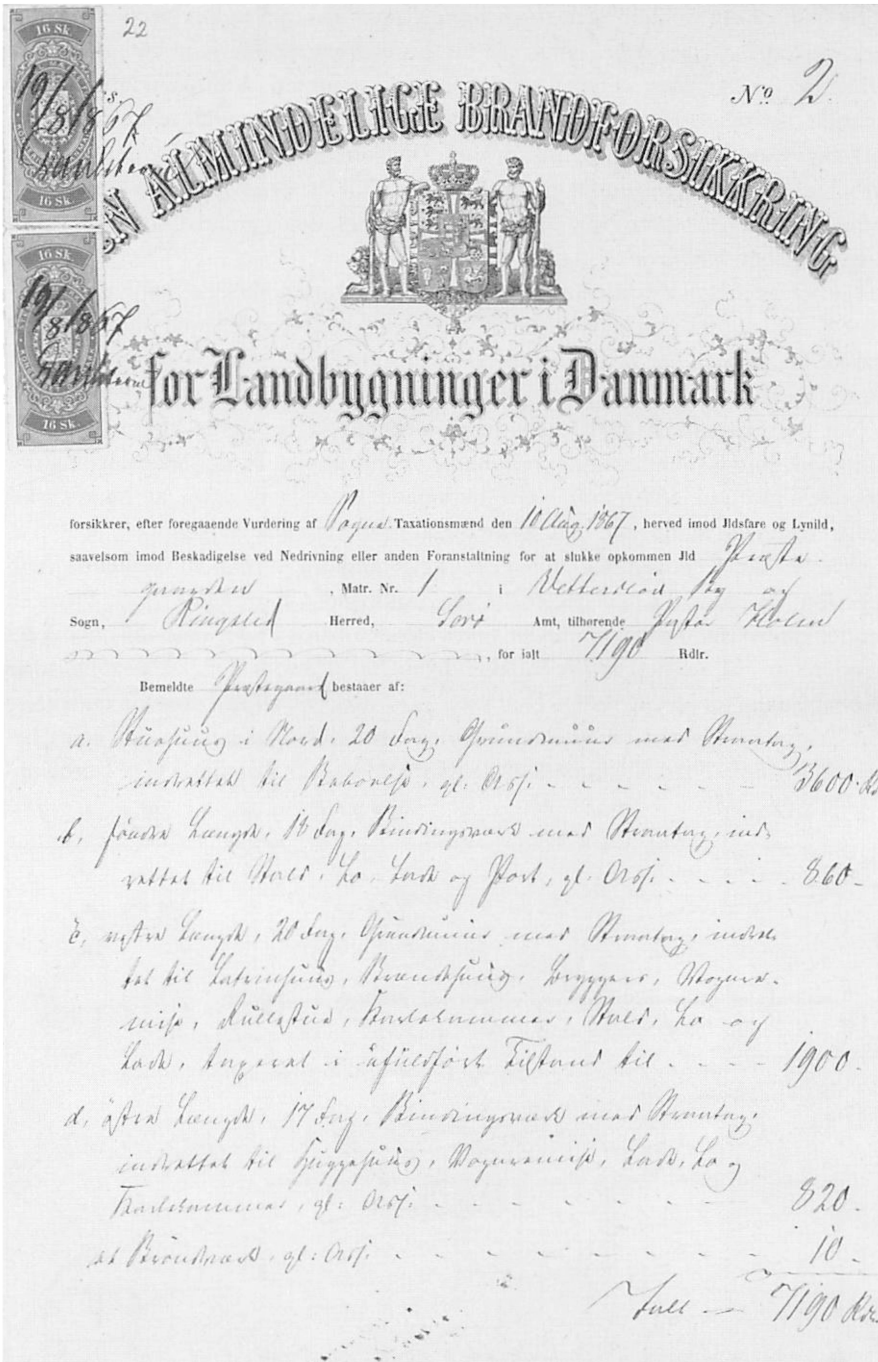 22
16 Sk.
19/8 1867
16 Sk.
16 Sk.
19/8 1867
16 Sk.
No. 2.
EN ALMINDELIGE BRANDFORSIKKRING
for Landbygninger i Danmark
forsikkrer, efter foregaaende Vurdering af Sogne Taxationsmænd den 10 Aug. 1867, herved imod Jldsfare og Lynild,
saavelsom imod Beskadigelse ved Nedrivning eller anden Foranstaltning for at slukke opkommen Jld Præste-
gaarden , Matr. Nr. 1 i Vetterslev By og
Sogn, Ringsted Herred, Sorø Amt, tilhørende Pastor Holm
, for ialt 7190 Rdlr.
Bemeldte Præstegaard bestaaer af:
a. Stuehuus i Nord, 20 Fag, Grundmuur med Straatag,
indrettet til Beboelse, gl: Ass. - - - - - - 3600 Rd
b, søndre Længde, 16 Fag, Bindingsværk med Straatag, ind-
rettet til Stald, Lo, Lade og Port, gl: Ass. - - - - 860 -
c, vestre Længde, 20 Fag, Grundmuur med Straatag, indret-
tet til Latrinhuus, Brændehuus, Bryggers, Vognre-
mise, Rullestue, Karlekammer, Stald, Lo og
Lade, taxeret i ufuldført Tilstand til - - - 1900 -
d, østre Længde, 17 Fag, Bindingsværk med Straatag,
indrettet til Huggehuus, Vognremise, Lade, Lo og
Karlekammer, gl: Ass. - - - - - - 820 -
et Brøndværk, gl: Ass. - - - - - - 10 -
Ialt — 7190 Rd.